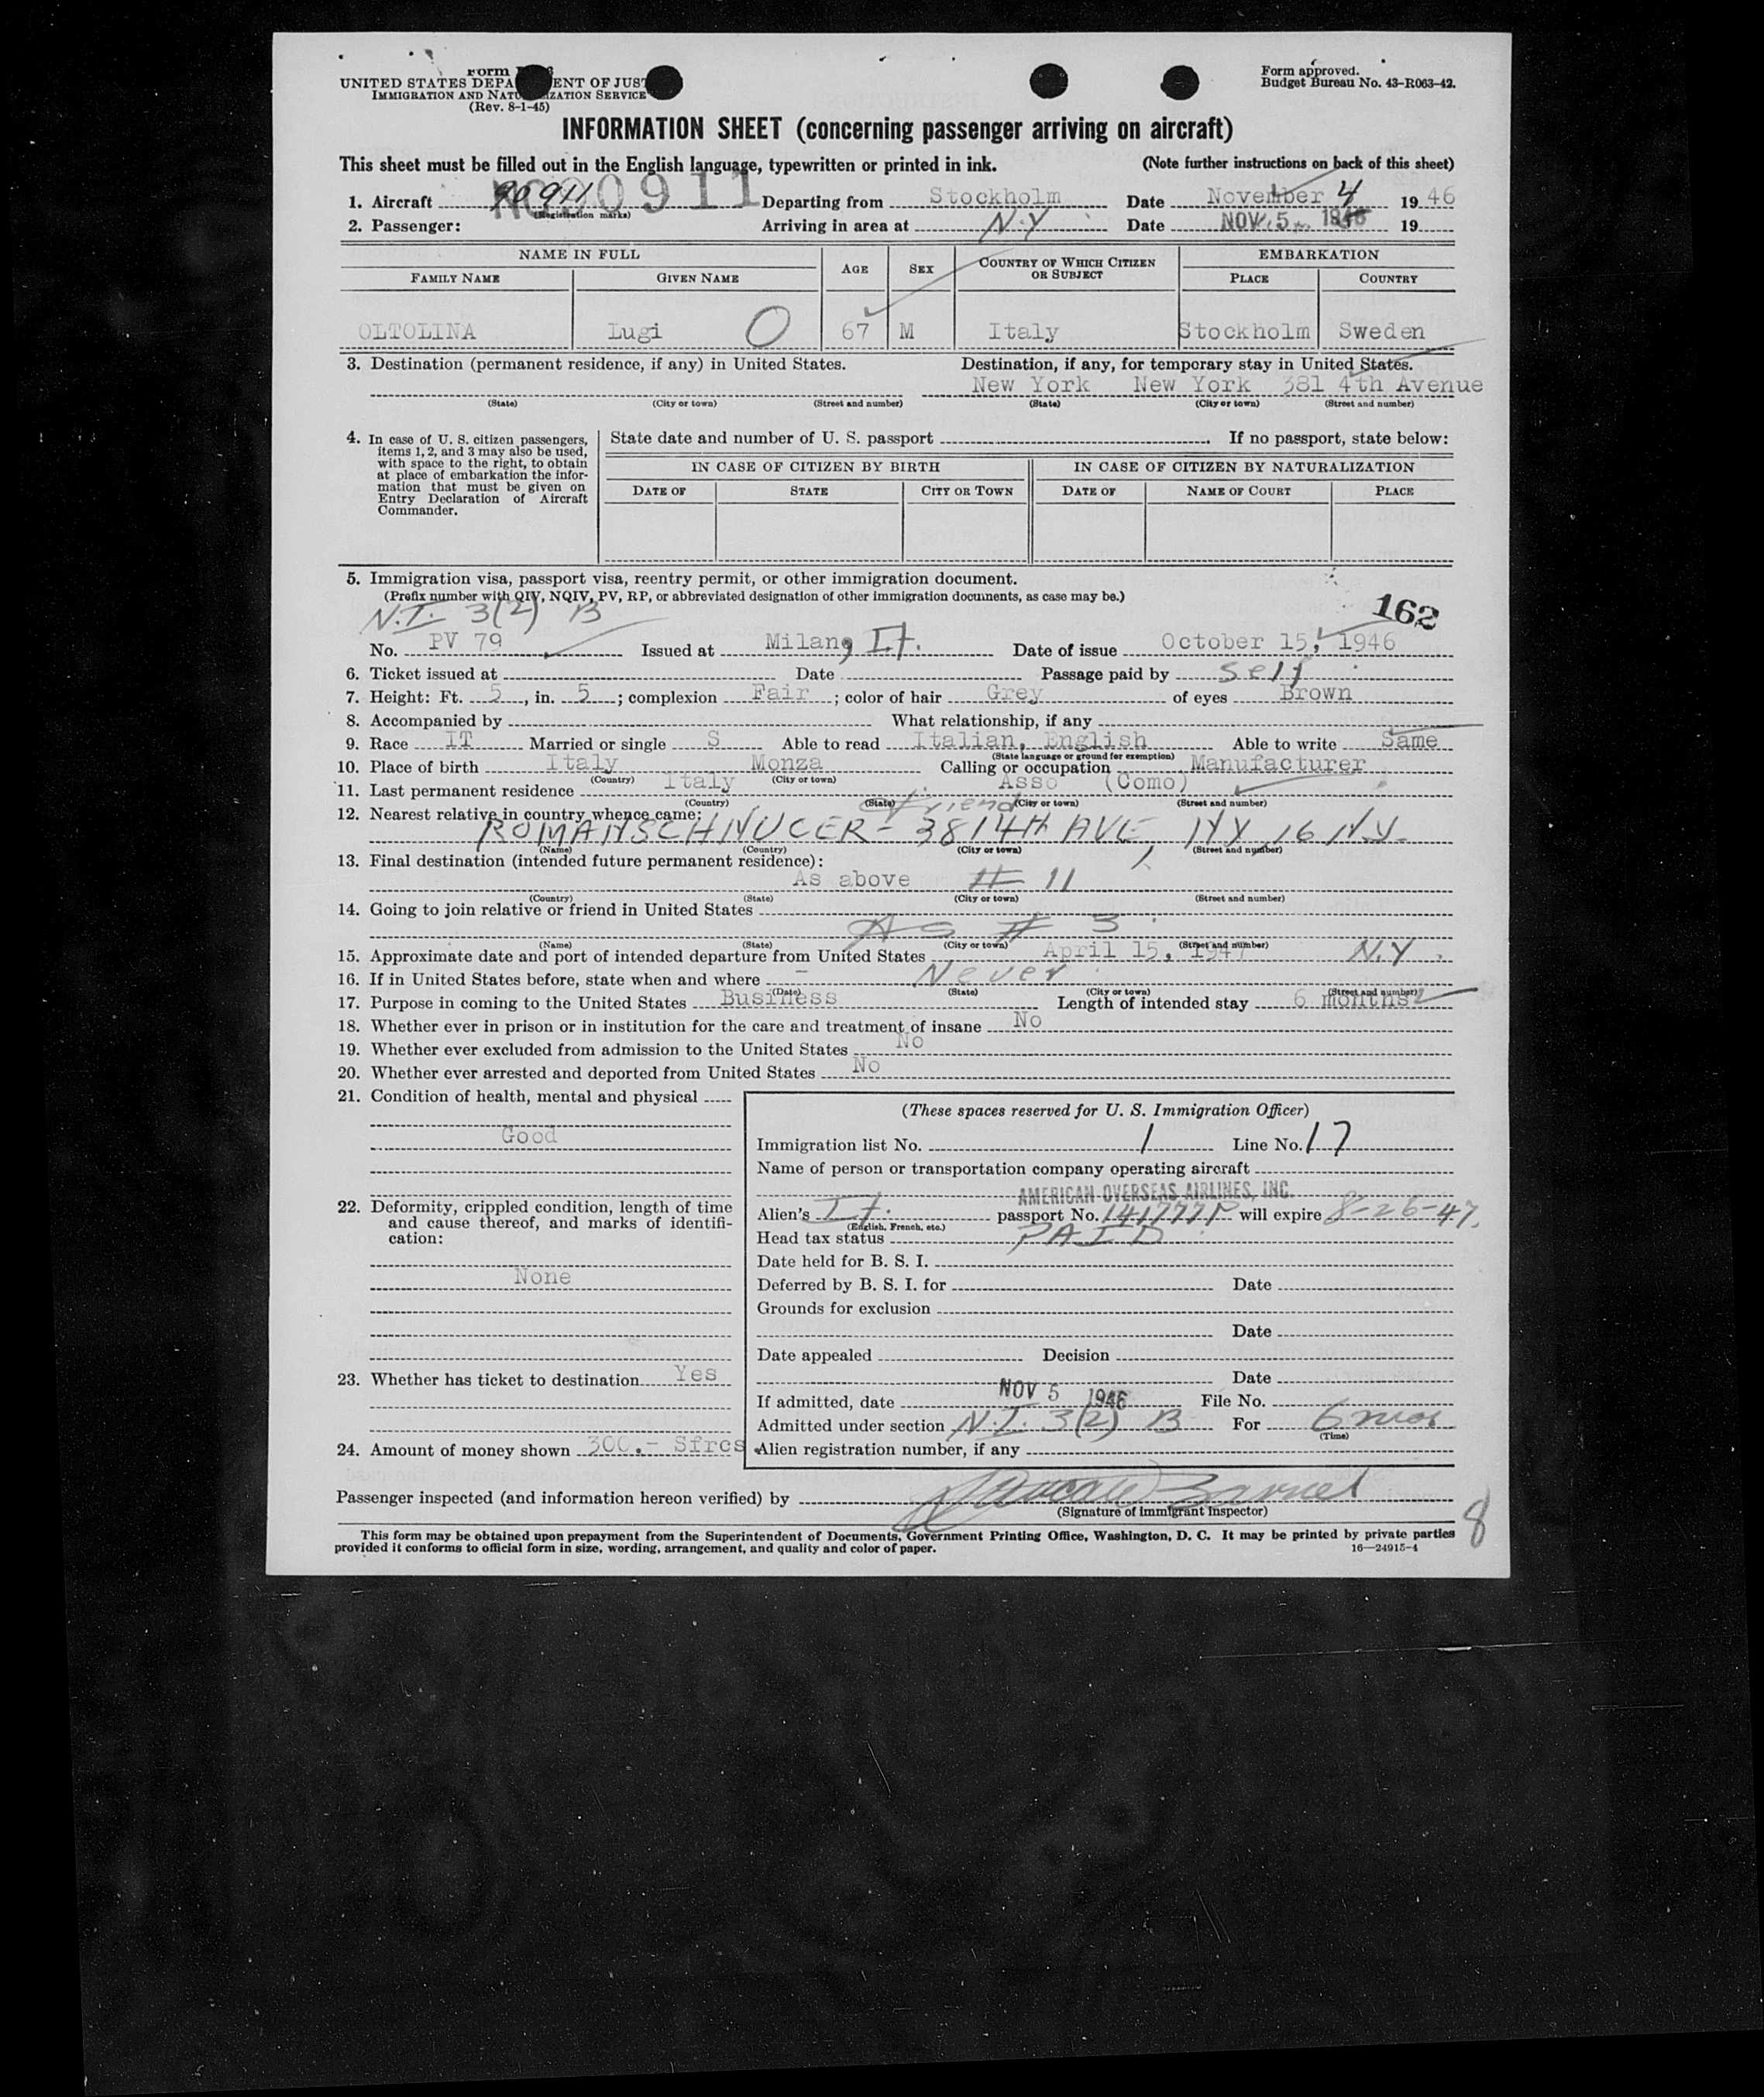 Form
UNITED STATES DEPA ENT OF JUS
IMMIGRATION AND NATU IZATION SERVICE
(Rev. 8-1-45)
Form approved.
Budget Bureau No. 43-R063-42.
INFORMATION SHEET (concerning passenger arriving on aircraft)
This sheet must be filled out in the English language, typewritten or printed in ink. (Note further instructions on back of this sheet)
1. Aircraft 90911 NC90911 Departing from Stockholm Date November 4 1946
(Registration marks)
2. Passenger: Arriving in area at N.Y Date NOV 5 1946 19
NAME IN FULL AGE SEX COUNTRY OF WHICH CITIZEN OR SUBJECT EMBARKATION
FAMILY NAME GIVEN NAME PLACE COUNTRY
OLTOLINA Lugi O 67 M Italy Stockholm Sweden
3. Destination (permanent residence, if any) in United States. Destination, if any, for temporary stay in United States.
New York New York 381 4th Avenue
(State) (City or town) (Street and number) (State) (City or town) (Street and number)
4. In case of U. S. citizen passengers, items 1, 2, and 3 may also be used, with space to the right, to obtain at place of embarkation the information that must be given on Entry Declaration of Aircraft Commander.
State date and number of U. S. passport . If no passport, state below:
IN CASE OF CITIZEN BY BIRTH IN CASE OF CITIZEN BY NATURALIZATION
DATE OF STATE CITY OR TOWN DATE OF NAME OF COURT PLACE
5. Immigration visa, passport visa, reentry permit, or other immigration document.
(Prefix number with QIV, NQIV, PV, RP, or abbreviated designation of other immigration documents, as case may be.)
N.I. 3(2) B 162
No. PV 79 Issued at Milan, It. Date of issue October 15, 1946
6. Ticket issued at Date Passage paid by self
7. Height: Ft. 5, in. 5; complexion Fair; color of hair Grey of eyes Brown
8. Accompanied by What relationship, if any
9. Race IT Married or single S Able to read Italian, English Able to write Same
(State language or ground for exemption)
10. Place of birth Italy Monza Calling or occupation Manufacturer
(Country) (City or town)
11. Last permanent residence Italy Asso (Como)
(Country) (State) (City or town) (Street and number)
12. Nearest relative in country whence came: friend
ROMANSCHNUCER - 381 4th AVE NY 16 N.Y.
(Name) (Country) (City or town) (Street and number)
13. Final destination (intended future permanent residence):
As above # 11
(Country) (State) (City or town) (Street and number)
14. Going to join relative or friend in United States
As # 3
(Name) (State) (City or town) (Street and number)
15. Approximate date and port of intended departure from United States April 15, 1947 N.Y.
16. If in United States before, state when and where Never
(Date) (State) (City or town) (Street and number)
17. Purpose in coming to the United States Business Length of intended stay 6 months
18. Whether ever in prison or in institution for the care and treatment of insane No
19. Whether ever excluded from admission to the United States No
20. Whether ever arrested and deported from United States No
21. Condition of health, mental and physical
Good
22. Deformity, crippled condition, length of time and cause thereof, and marks of identification:
None
23. Whether has ticket to destination Yes
24. Amount of money shown 300.- Sfrcs
(These spaces reserved for U. S. Immigration Officer)
Immigration list No. 1 Line No. 17
Name of person or transportation company operating aircraft
AMERICAN OVERSEAS AIRLINES, INC.
Alien's It. passport No. 141777P will expire 8-26-47.
(English, French, etc.)
Head tax status PAID
Date held for B. S. I.
Deferred by B. S. I. for Date
Grounds for exclusion
Date
Date appealed Decision
Date
If admitted, date NOV 5 1946 File No.
Admitted under section N.I. 3(2) B For 6 mos
(Time)
Alien registration number, if any
Passenger inspected (and information hereon verified) by
(Signature of Immigrant Inspector)
8
This form may be obtained upon prepayment from the Superintendent of Documents, Government Printing Office, Washington, D. C. It may be printed by private parties
provided it conforms to official form in size, wording, arrangement, and quality and color of paper. 16—24915-4